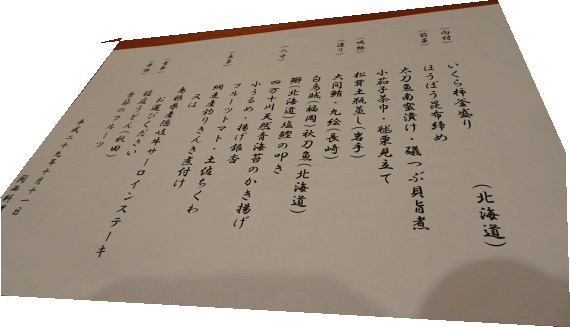 (向付)
いくら柿釜盛り (北海道)
(前菜)
ほうぼう昆布締め
太刀魚南蛮漬け・磯つぶ貝旨煮
小茄子茶巾・毬栗見立て
(吸物)
松茸土瓶蒸し(岩手)
(造り)
大間鮪・九絵(長崎)
白烏賊(福岡)秋刀魚(北海道)
鰤(北海道)塩鰹の叩き
(八寸)
四万十川天然青海苔のかき揚げ
小うるめ・揚げ銀杏
フルーツトマト・土佐ちくわ
網走産釣りきんき煮付け
又は
島根県産隠岐牛サーロインステーキ
お選びください
稲庭うどん(秋田)
季節のフルーツ
平成二十九年十月十一日